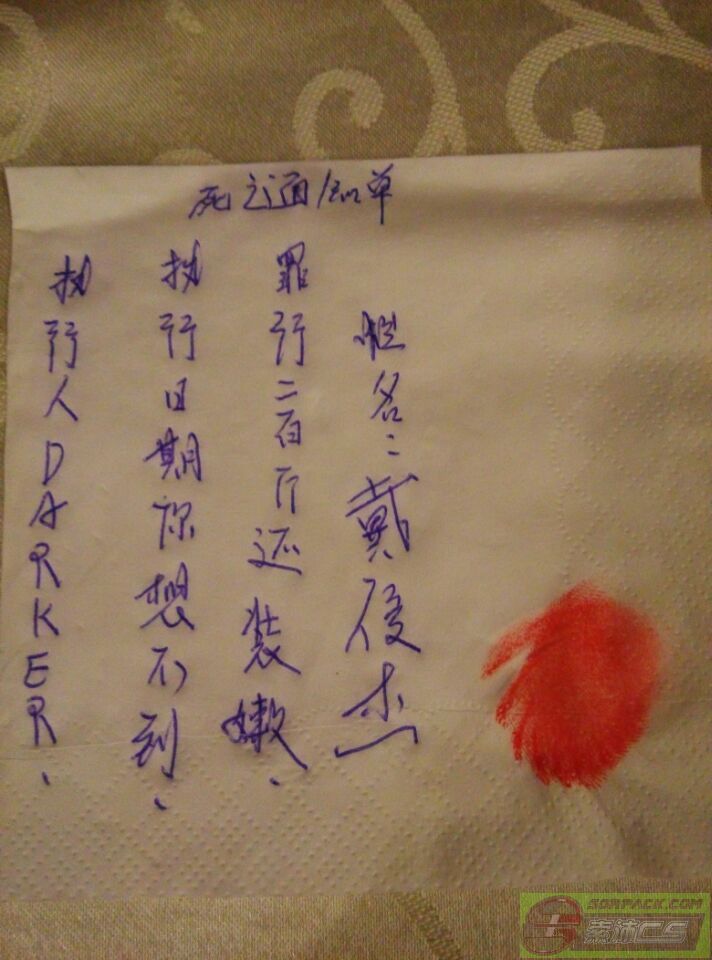 死亡通知单
姓名:戴俊杰
罪行二百斤还装嫩.
执行日期你想不到.
执行人DARKER.
SORPACK.COM
CS